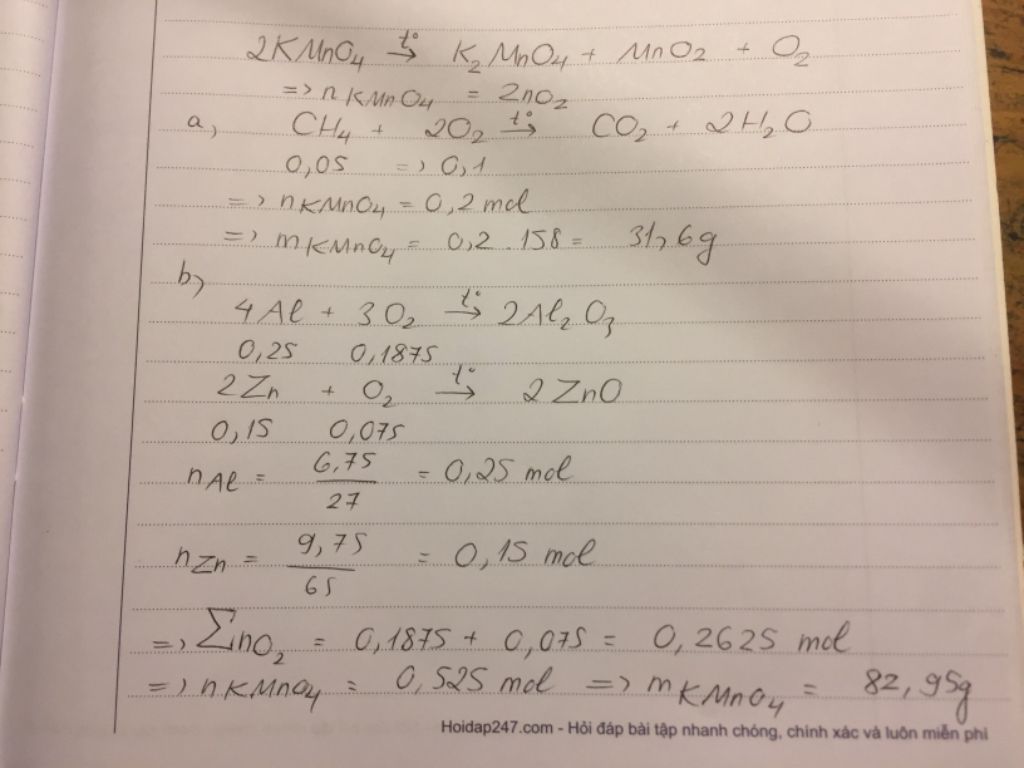 2KMnO4 t°→ K2MnO4 + MnO2 + O2
=> nKMnO4 = 2nO2
a, CH4 + 2O2 t°→ CO2 + 2H2O
0,05 => 0,1
=> nKMnO4 = 0,2 mol
=> mKMnO4 = 0,2 . 158 = 31,6g
b,
4Al + 3O2 t°→ 2Al2O3
0,25 0,1875
2Zn + O2 t°→ 2ZnO
0,15 0,075
nAl = 6,75/27 = 0,25 mol
nZn = 9,75/65 = 0,15 mol
=> ΣnO2 = 0,1875 + 0,075 = 0,2625 mol
=> nKMnO4 = 0,525 mol => mKMnO4 = 82,95g
Hoidap247.com - Hỏi đáp bài tập nhanh chóng, chính xác và luôn miễn phí